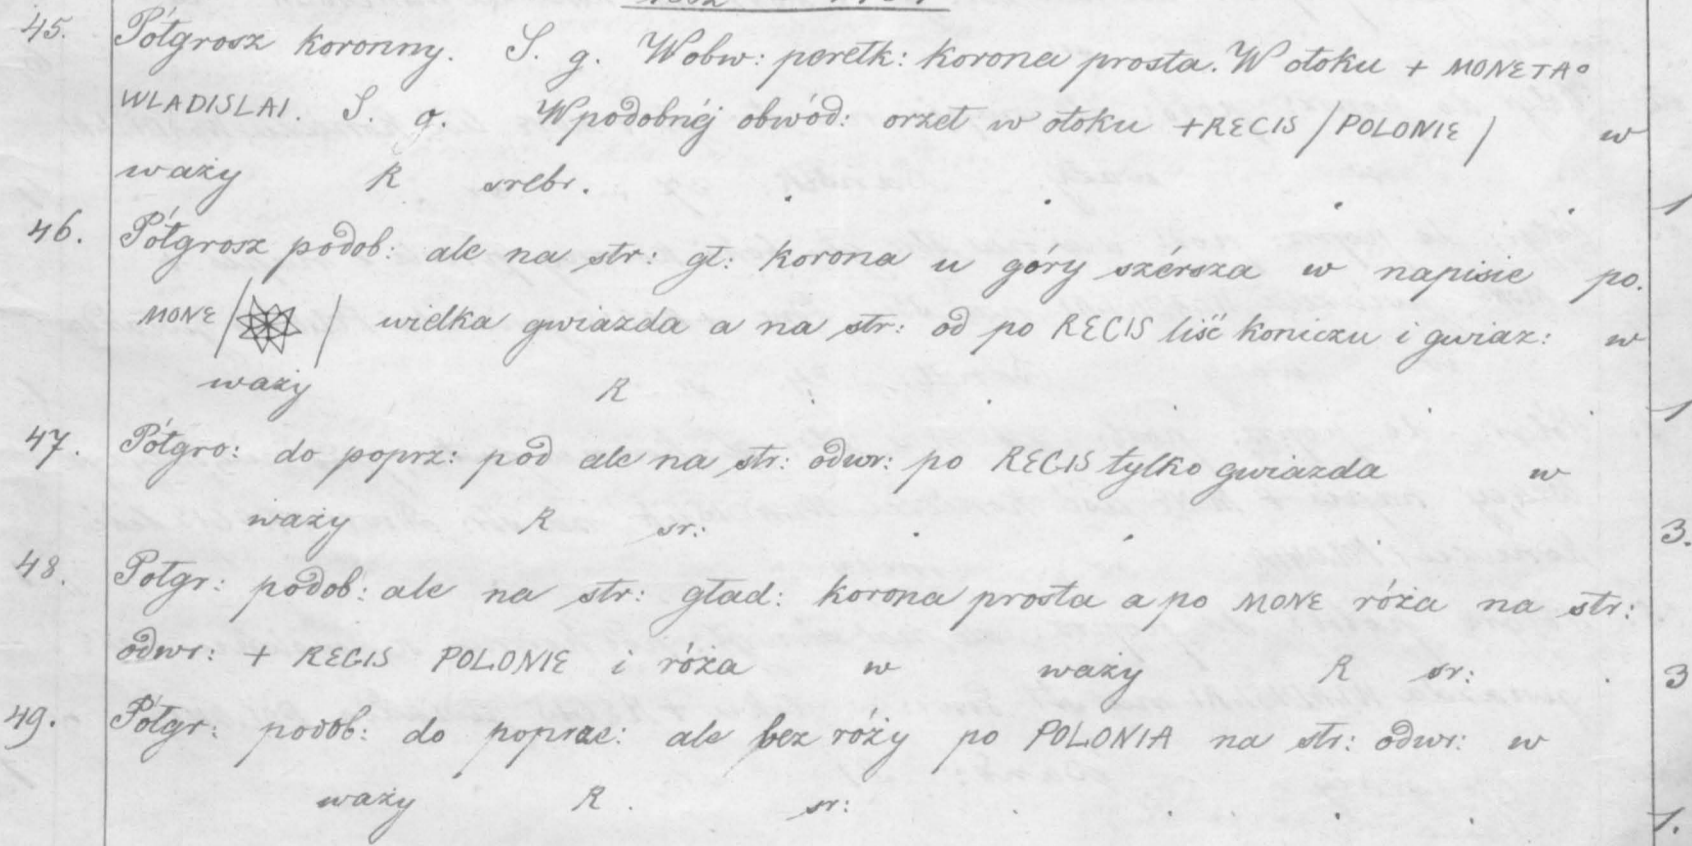 45. Półgrosz koronny. S. g. W obw: perełk: korona prosta. W otoku + MONETA°
WLADISLAI. S. g. W podobnéj obwód: orzeł w otoku +REGIS / POLONIE / w
waży R srebr. 1
46. Półgrosz podob: ale na str: gł: korona u góry szérsza w napisie po.
MONE / / wielka gwiazda a na str: od po REGIS liść koniczu i gwiaz: w
waży R 1
47. Półgro: do poprz: pod ale na str: odwr: po REGIS tylko gwiazda w
waży R sr: 3.
48. Połgr: podob: ale na str: gład: korona prosta a po MONE róża na str:
odwr: + REGIS POLONIE i róża w waży R sr: 3
49. Półgr: podob: do poprze: ale bez róży po POLONIA na str: odwr: w
waży R. sr: 1.